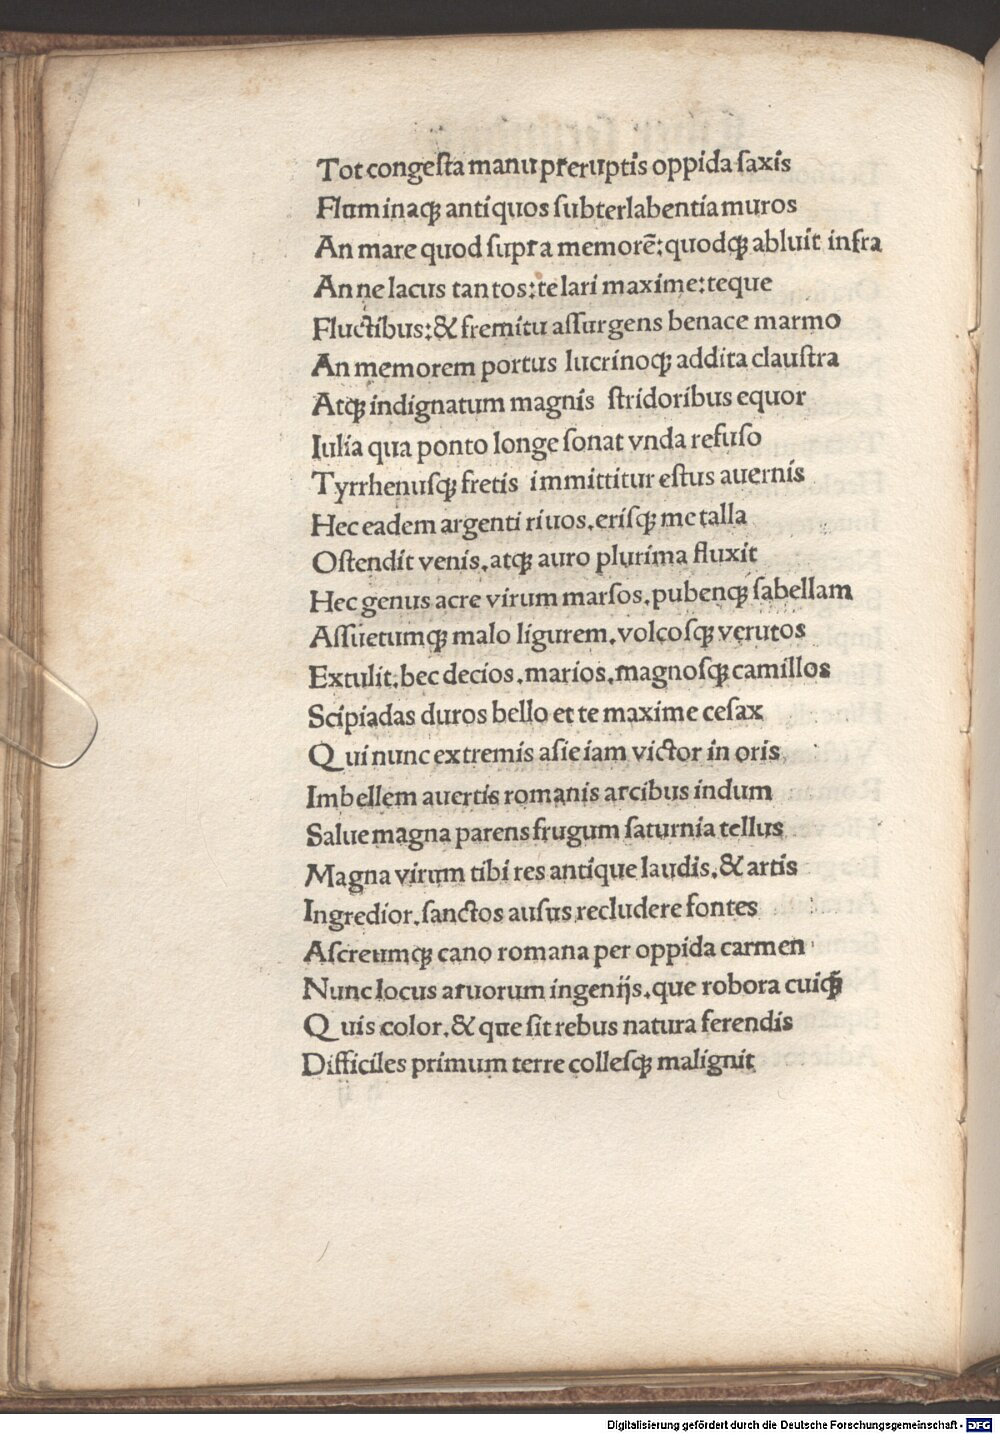 Tot congeſta manu preruptis oppida ſaxis
Fluminaqꝫ antiquos ſubterlabentia muros
An mare quod ſupra memorē: quodqꝫ abluit infra
Anne lacus tantos: te lari maxime: teque
Fluctibus: & fremitu aſſurgens benace marmo
An memorem portus lucrinoqꝫ addita clauſtra
Atqꝫ indignatum magnis ſtridoribus equor
Iulia qua ponto longe ſonat vnda refuſo
Tyrrhenuſqꝫ fretis immittitur eſtus auernis
Hec eadem argenti riuos. eriſqꝫ metalla
Oſtendit venis. atqꝫ auro plurima fluxit
Hec genus acre virum marſos. pubenqꝫ ſabellam
Aſſuetumqꝫ malo ligurem. volcoſqꝫ verutos
Extulit: hec decios. marios. magnoſqꝫ camillos
Scipiadas duros bello et te maxime ceſax
Qui nunc extremis aſie iam victor in oris
Imbellem auertis romanis arcibus indum
Salue magna parens frugum ſaturnia tellus
Magna virum tibi res antique laudis. & artis
Ingredior. ſanctos auſus recludere fontes
Aſcreumqꝫ cano romana per oppida carmen
Nunc locus aruorum ingenijs. que robora cuiqꝫ̄
Quis color. & que ſit rebus natura ferendis
Difficiles primum terre colleſqꝫ malignit
Digitalisierung gefördert durch die Deutsche Forschungsgemeinschaft - DFG